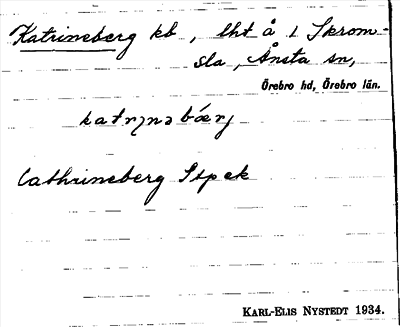 Katrineberg kb, lht å 1 Skrom-
sla, Ånsta sn,
Örebro hd, Örebro län.
Cathrineberg
KARL-ELIS NYSTEDT 1934.